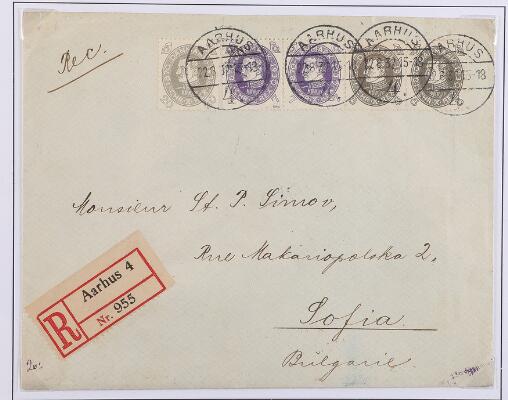 Rec.
AARHUS AARHUS AARHUS AARHUS
4
Monsieur St. P. Simov,
Rue Makariopolska 2,
Sofia
Bulgarie.
R
Aarhus 4
Nr. 955